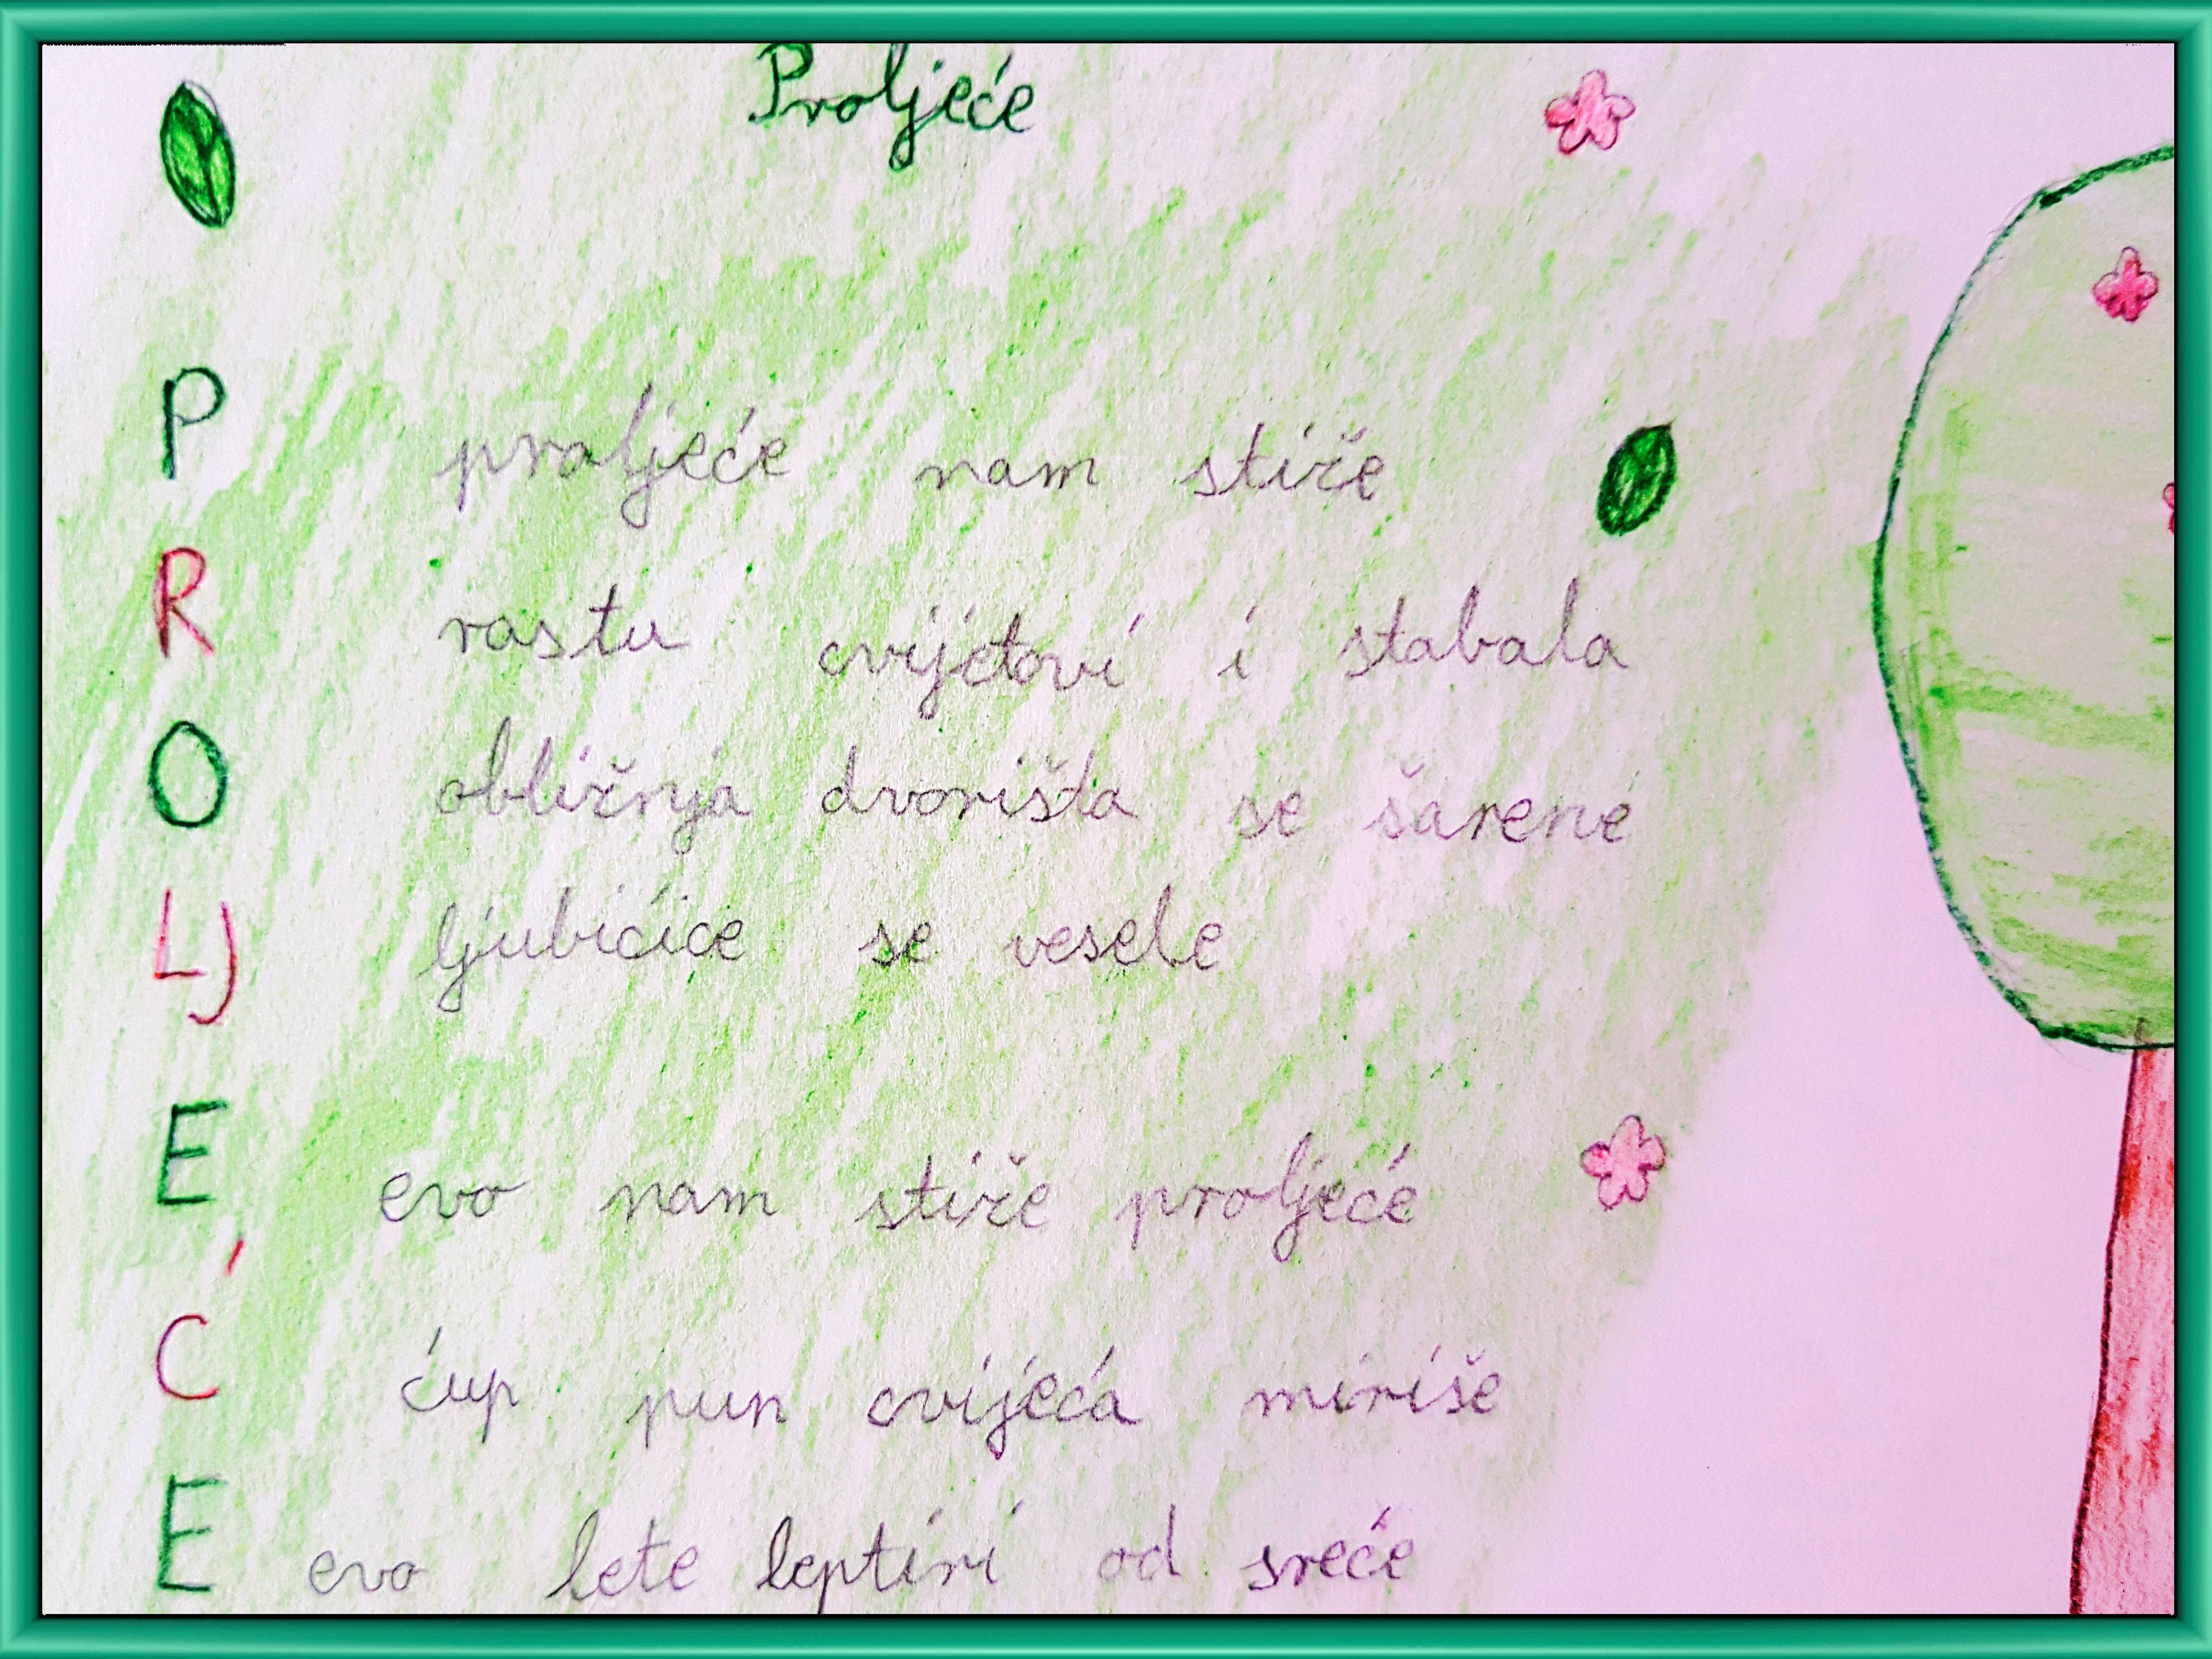 Proljeće
P proljeće nam stiže
R rastu cvijetovi i stabala
O obližnja dvorišta se šarene
LJ ljubićice se vesele
E evo nam stiže proljeće
Ć ćup pun cvijeća miriše
E evo lete leptiri od sreće